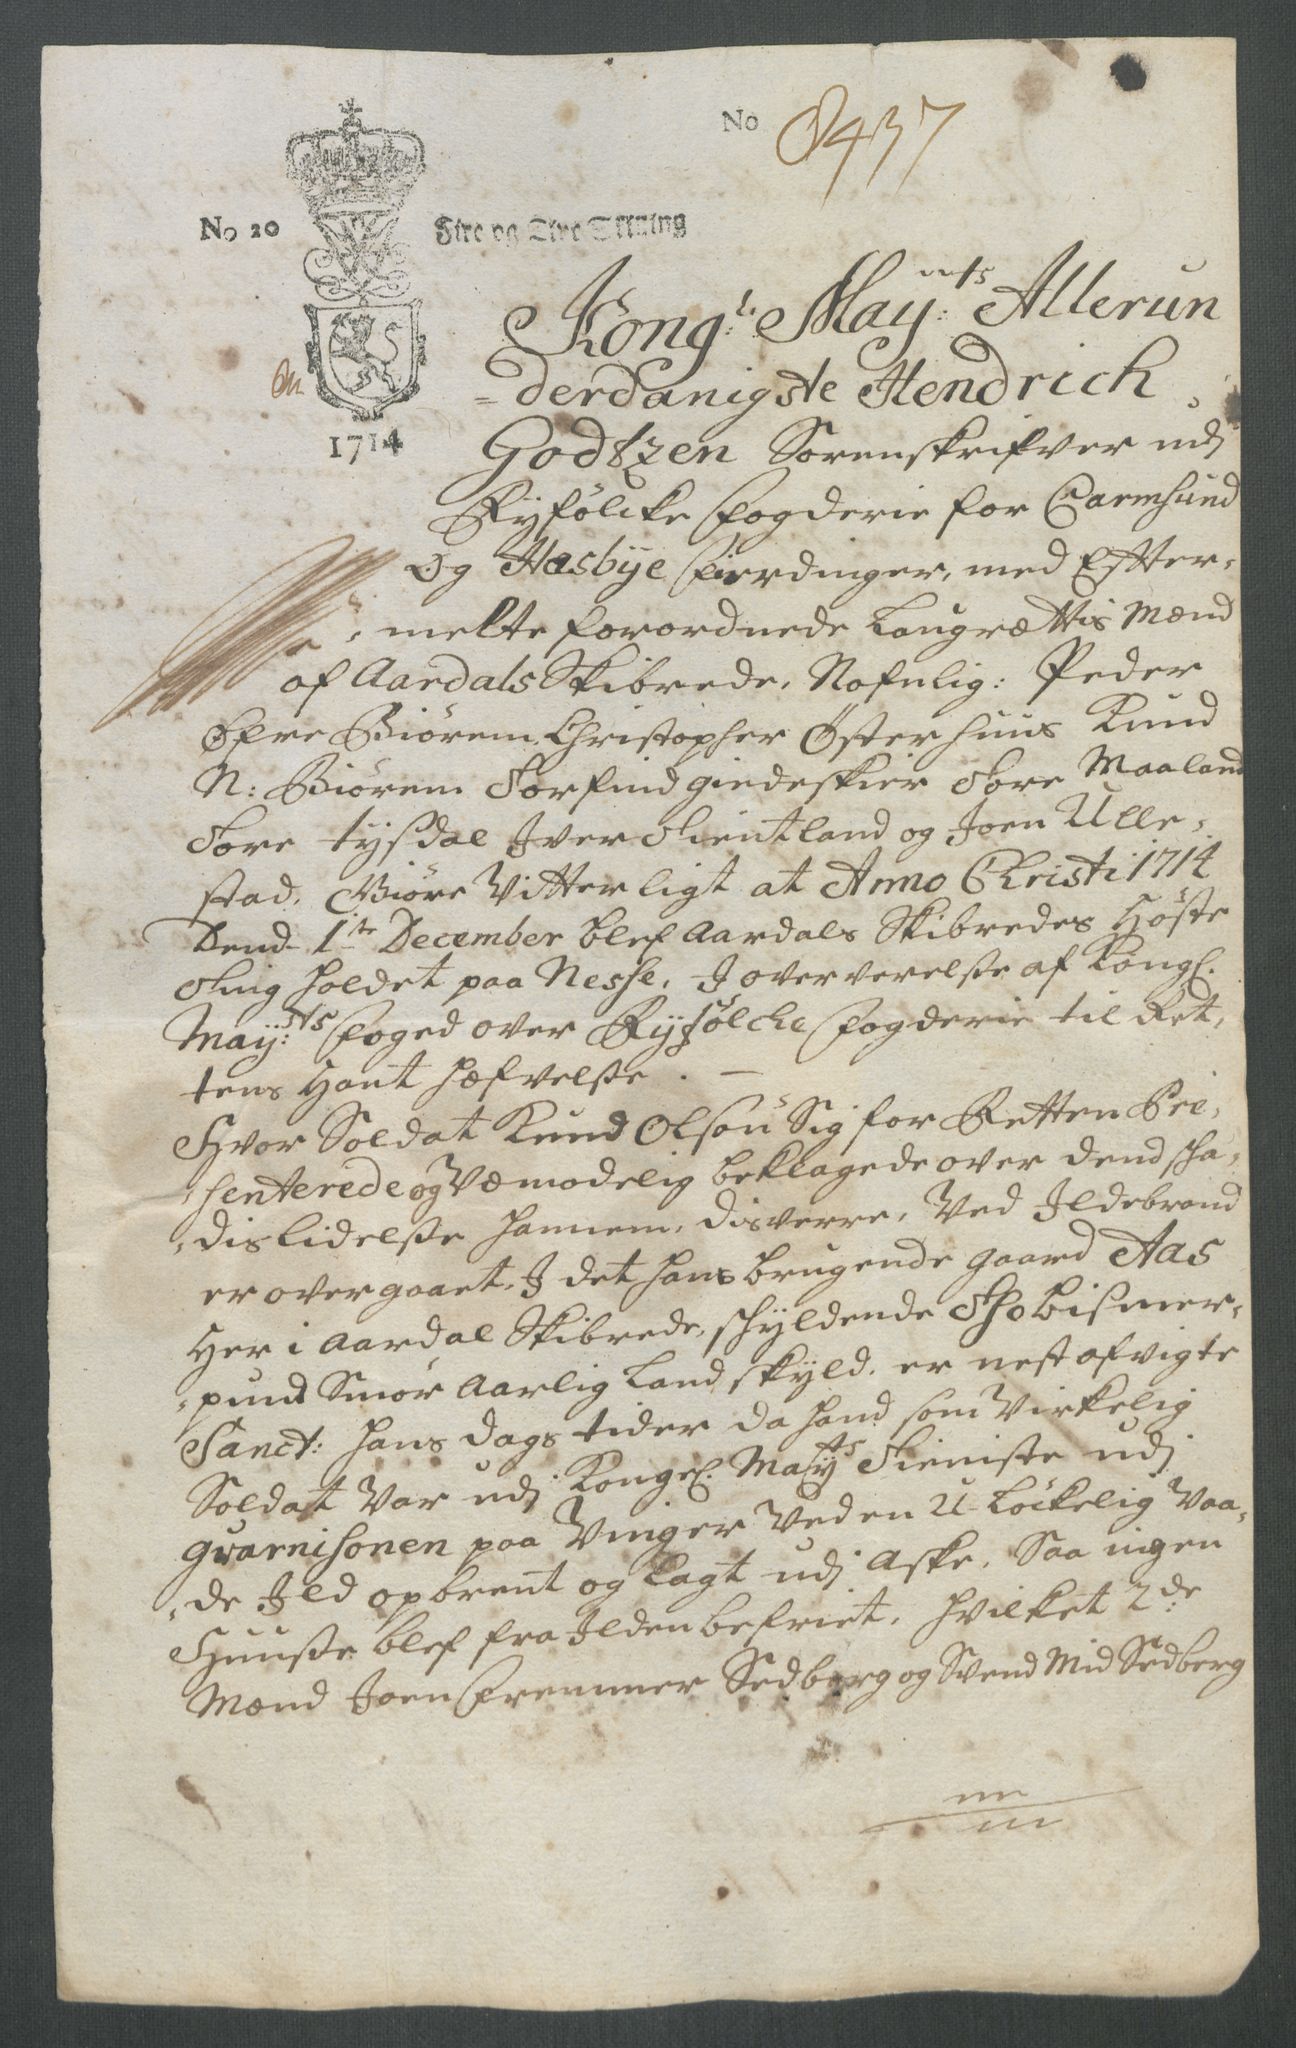 No 8437
No 20 Fire og Tive Skilling
1714
Kong: May:ts Allerun
=derdanigste Hendrich
Godtzen Sorenskrifver udj
Ryfölcke fogderie for Carmsund
Og Hesbye fierdinger, med Efter-
-melte forordnede Laugrættis Mænd
af Aardals Skibrede, Nafnlig: Peder
Øfre Biörem, Christopher Österhuus Knud
N: Biörem Torfind giedeskier Tore Maaland
Tore tysdal Iver Tientland og Joen Ulle-
stad, Giöre Vitterligt at Anno Christi 1714
Dend 1te December blef Aardals Skibredes Höste
Ting holdet paa Nesse, J oververelse af Kongl.
May:ts foged over Ryfölcke fogderie til Ret-
tens Hant hæfvelse. –
Hvor Soldat Knud Olsøn Sig for Retten Pre-
-senterede og Væmodelig beklagede over dend scha-
-dis lidelse hannem, disverre, Ved Ildebrand
er overgaaet, J det hans brugende gaard Aas
Her i Aardal Skibrede, schyldende Tho bismer-
-pund Smör Aarlig Landskyld, er nest afvigte
Sanct: Hans dags tider da hand som Virkelig
Soldat Var udj Kongel. May:ts Tieniste udj
gvarnisonen paa Vinger Ved en U-löckelig Vaa-
-de Ild opbrent og lagt udj Aske, Saa ingen
Huuse blef fra Ilden befriet, hvilket 2de
Mænd Joen fremmer Sedberg og Svend Mid Sedberg